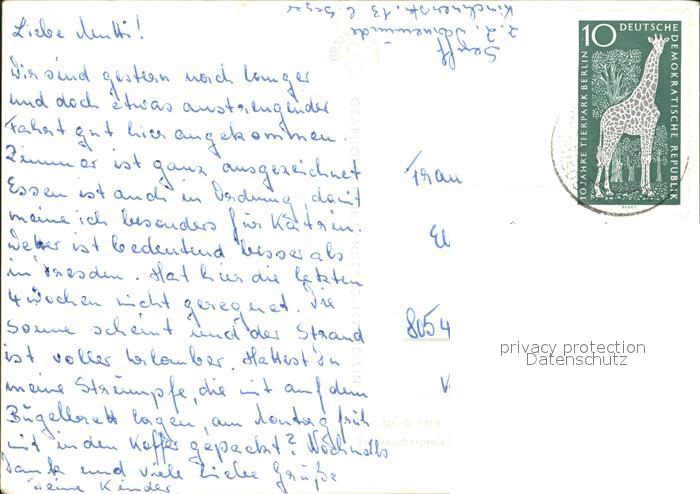 Liebe Mutti!
Wir sind gestern nach langer
und doch etwas anstrengender
Fahrt gut hier angekommen.
Zimmer ist ganz ausgezeichnet
Essen ist auch in Ordnung, damit
meine ich besonders für Katrin.
Wetter ist bedeutend besser als
in Dresden. Hat hier die letzten
4 Wochen nicht geregnet. Die
Sonne scheint und der Strand
ist voller Urlauber. Hattest Du
meine Strümpfe, die mit auf dem
Bügelbrett lagen, am Montag früh
mit in den Koffer gepackt? Nochmals
Dank und viele liebe Grüße
Deine Kinder
Kirchnerstr. 13 b.
Frau
8054
10 DEUTSCHE
DEMOKRATISCHE REPUBLIK
10 JAHRE TIERPARK BERLIN
-Nr. G 7
Verbraucherpreis
privacy protection
Datenschutz